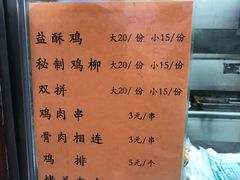 盐酥鸡 大20/份 小15/份
秘制鸡柳 大20/份 小15/份
双拼 大20/份 小15/份
鸡肉串 3元/串
骨肉相连 3元/串
鸡排 5元/个